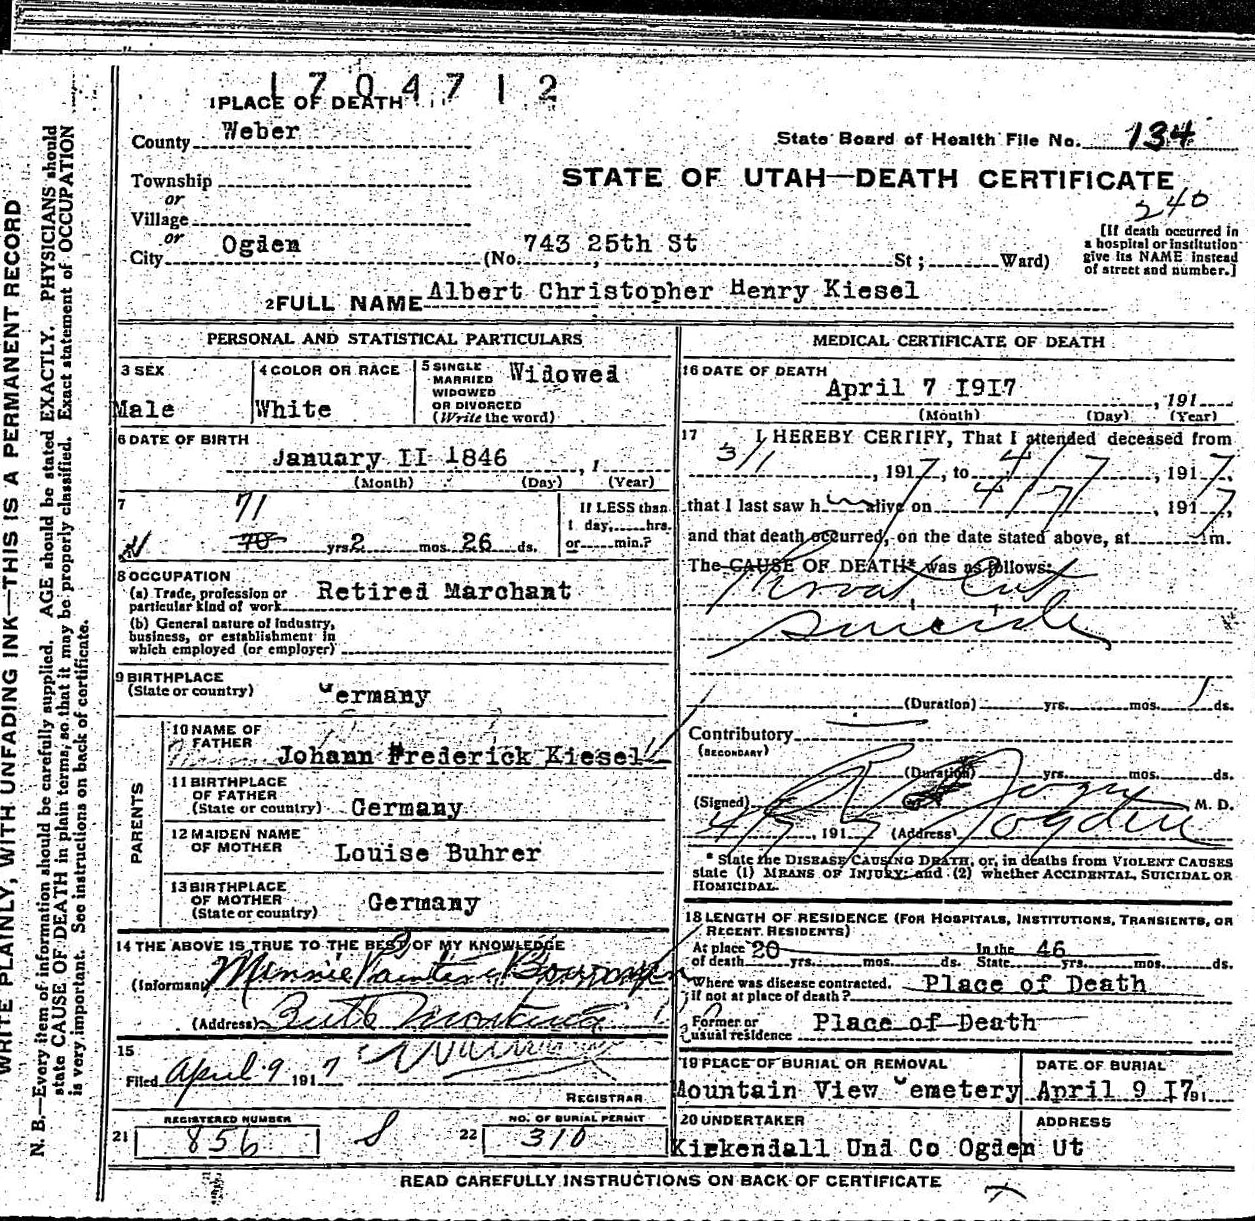 1704712
1 PLACE OF DEATH
County Weber
State Board of Health File No. 134
Township
or
Village
or
City Ogden (No. 743 25th St St; Ward)
STATE OF UTAH—DEATH CERTIFICATE
240
[If death occurred in
a hospital or institution
give its NAME instead
of street and number.]
2 FULL NAME Albert Christopher Henry Kiesel
PERSONAL AND STATISTICAL PARTICULARS
3 SEX
Male
4 COLOR OR RACE
White
5 SINGLE
MARRIED
WIDOWED
OR DIVORCED
(Write the word)
Widowed
6 DATE OF BIRTH
January II 1846 , 1
(Month) (Day) (Year)
7
71
70 yrs. 2 mos. 26 ds.
If LESS than
1 day, hrs.
or min.?
8 OCCUPATION
(a) Trade, profession or
particular kind of work Retired Marchant
(b) General nature of industry,
business, or establishment in
which employed (or employer)
9 BIRTHPLACE
(State or country) Germany
PARENTS
10 NAME OF
FATHER Johann Frederick Kiesel
11 BIRTHPLACE
OF FATHER
(State or country) Germany
12 MAIDEN NAME
OF MOTHER Louise Buhrer
13 BIRTHPLACE
OF MOTHER
(State or country) Germany
14 THE ABOVE IS TRUE TO THE BEST OF MY KNOWLEDGE
(Informant) Minnie
(Address) Butte Montana
15
Filed April 9 1917
REGISTRAR
REGISTERED NUMBER
21 856
S
NO. OF BURIAL PERMIT
22 310
MEDICAL CERTIFICATE OF DEATH
16 DATE OF DEATH
April 7 I9I7 , 191
(Month) (Day) (Year)
17 I HEREBY CERTIFY, That I attended deceased from
3/1 , 1917, to 4/7 , 1917,
that I last saw him alive on 4/7 , 1917,
and that death occurred, on the date stated above, at m.
The CAUSE OF DEATH* was as follows:
Throat Cut
suicide
(Duration) yrs. mos. 1 ds.
Contributory
(SECONDARY)
(Duration) yrs. mos. ds.
(Signed) M. D.
4/7, 1917 (Address) Ogden
* State the DISEASE CAUSING DEATH, or, in deaths from VIOLENT CAUSES
state (1) MEANS OF INJURY; and (2) whether ACCIDENTAL, SUICIDAL OR
HOMICIDAL.
18 LENGTH OF RESIDENCE (FOR HOSPITALS, INSTITUTIONS, TRANSIENTS, OR
RECENT RESIDENTS)
At place of death 20 yrs. mos. ds. In the State 46 yrs. mos. ds.
Where was disease contracted,
if not at place of death? Place of Death
Former or
usual residence Place of Death
19 PLACE OF BURIAL OR REMOVAL
Mountain View Cemetery
DATE OF BURIAL
April 9 I7 191
20 UNDERTAKER
Kirkendall Und Co Ogden Ut
ADDRESS
READ CAREFULLY INSTRUCTIONS ON BACK OF CERTIFICATE
WRITE PLAINLY, WITH UNFADING INK—THIS IS A PERMANENT RECORD
N. B.—Every item of information should be carefully supplied. AGE should be stated EXACTLY. PHYSICIANS should
state CAUSE OF DEATH in plain terms, so that it may be properly classified. Exact statement of OCCUPATION
is very important. See instructions on back of certificate.